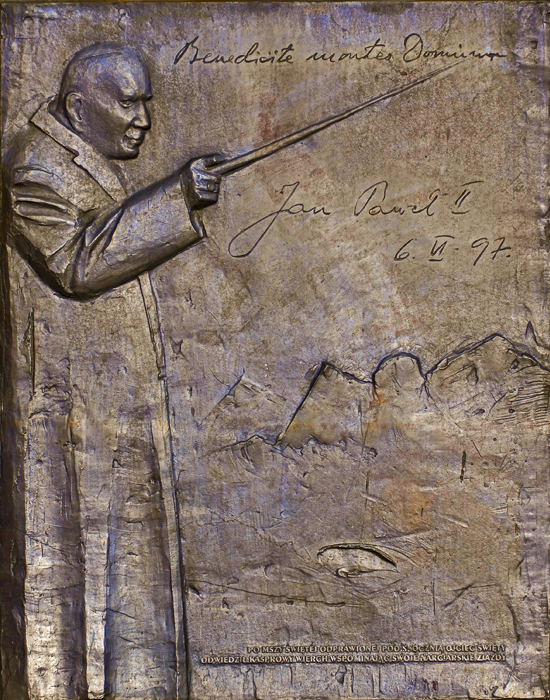 Benedicite montes Domino
Jan Paweł II
6. VI. 97.
PO MSZY ŚWIĘTEJ ODPRAWIONEJ POD SKOCZNIĄ OJCIEC ŚWIĘTY
ODWIEDZIŁ KASPROWY WIERCH WSPOMINAJĄC SWOJE NARCIARSKIE ZJAZDY